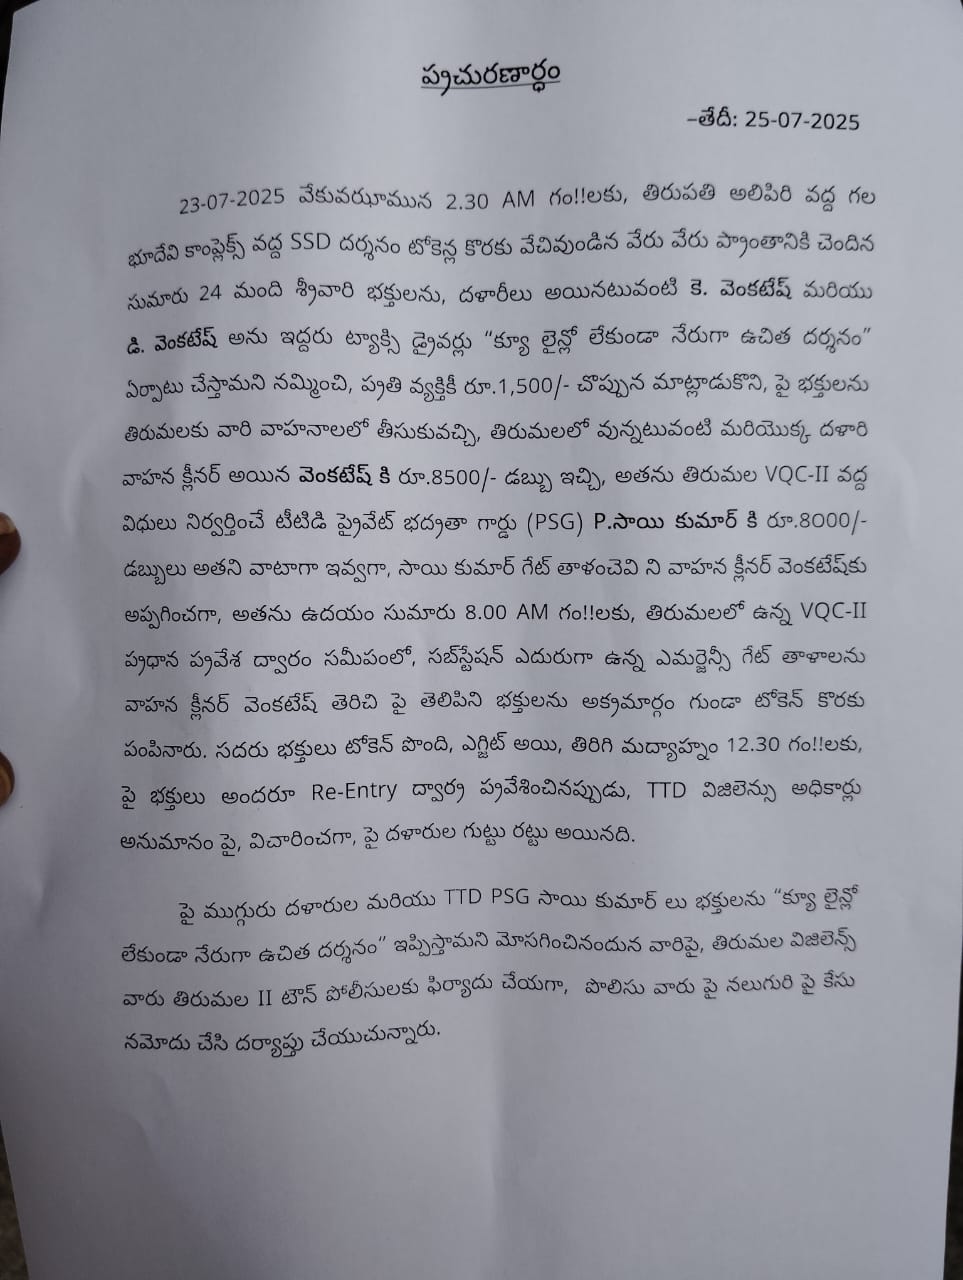 ప్రచురణార్ధం
–తేదీ: 25-07-2025
23-07-2025 వేకువఝామున 2.30 AM గం!!లకు, తిరుపతి అలిపిరి వద్ద గల
భూదేవి కాంప్లెక్స్ వద్ద SSD దర్శనం టోకెన్ల కొరకు వేచివుండిన వేరు వేరు ప్రాంతానికి చెందిన
సుమారు 24 మంది శ్రీవారి భక్తులను, దళారీలు అయినటువంటి కె. వెంకటేష్ మరియు
డి. వెంకటేష్ అను ఇద్దరు ట్యాక్సి డ్రైవర్లు “క్యూ లైన్లో లేకుండా నేరుగా ఉచిత దర్శనం”
ఏర్పాటు చేస్తామని నమ్మించి, ప్రతి వ్యక్తికీ రూ.1,500/- చొప్పున మాట్లాడుకొని, పై భక్తులను
తిరుమలకు వారి వాహనాలలో తీసుకువచ్చి, తిరుమలలో వున్నటువంటి మరియొక్క దళారి
వాహన క్లీనర్ అయిన వెంకటేష్ కి రూ.8500/- డబ్బు ఇచ్చి, అతను తిరుమల VQC-II వద్ద
విధులు నిర్వర్తించే టీటిడి ప్రైవేట్ భద్రతా గార్డు (PSG) P.సాయి కుమార్ కి రూ.8000/-
డబ్బులు అతని వాటాగా ఇవ్వగా, సాయి కుమార్ గేట్ తాళంచెవి ని వాహన క్లీనర్ వెంకటేష్‌కు
అప్పగించగా, అతను ఉదయం సుమారు 8.00 AM గం!!లకు, తిరుమలలో ఉన్న VQC-II
ప్రధాన ప్రవేశ ద్వారం సమీపంలో, సబ్‌స్టేషన్ ఎదురుగా ఉన్న ఎమర్జెన్సీ గేట్ తాళాలను
వాహన క్లీనర్ వెంకటేష్ తెరిచి పై తెలిపిని భక్తులను అక్రమార్గం గుండా టోకెన్ కొరకు
పంపినారు. సదరు భక్తులు టోకెన్ పొంది, ఎగ్జిట్ అయి, తిరిగి మద్యాహ్నం 12.30 గం!!లకు,
పై భక్తులు అందరూ Re-Entry ద్వార్ర ప్రవేశించినప్పుడు, TTD విజిలెన్సు అధికార్లు
అనుమానం పై, విచారించగా, పై దళారుల గుట్టు రట్టు అయినది.
పై ముగ్గురు దళారుల మరియు TTD PSG సాయి కుమార్ లు భక్తులను “క్యూ లైన్లో
లేకుండా నేరుగా ఉచిత దర్శనం” ఇప్పిస్తామని మోసగించినందున వారిపై, తిరుమల విజిలెన్స్
వారు తిరుమల II టౌన్ పోలీసులకు ఫిర్యాదు చేయగా, పొలిసు వారు పై నలుగురి పై కేసు
నమోదు చేసి దర్యాప్తు చేయుచున్నారు.